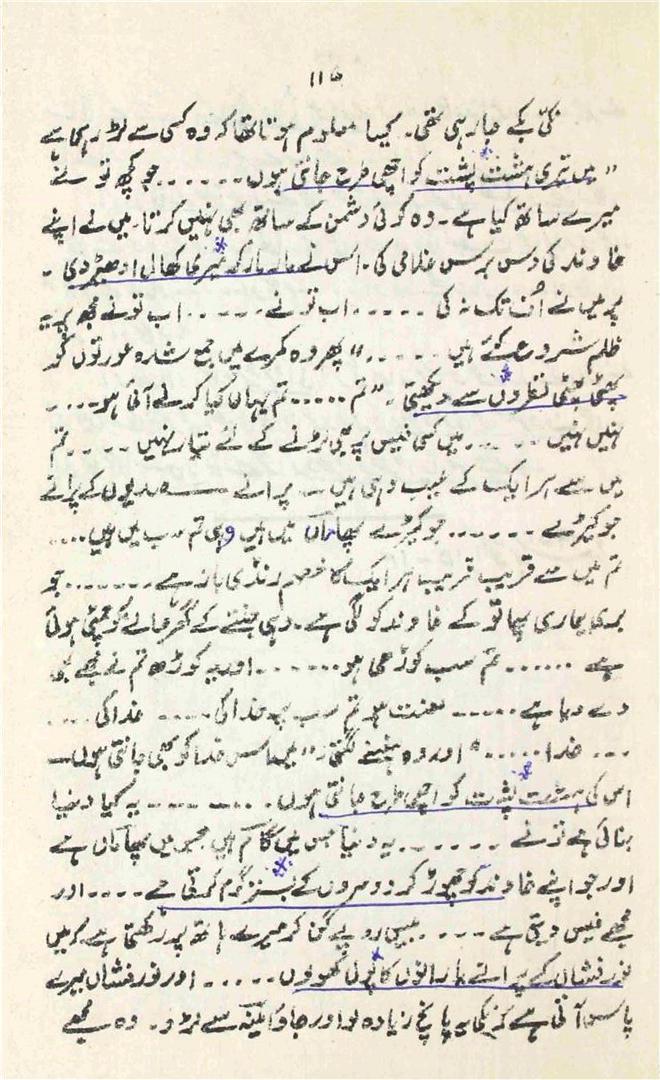 ۱۱۵
بکے جا رہی تھی۔ کیسا معلوم ہوتا تھا کہ وہ کسی سے لڑ رہی ہے
"میں تیری ہشت پشت کو اچھی طرح جانتی ہوں ۔۔۔۔۔۔ جو کچھ تو نے
میرے ساتھ کیا ہے۔ وہ کوئی دشمن کے ساتھ بھی نہیں کرتا۔ میں نے اپنے
خاوند کی دس برس غلامی کی۔ اس نے مار مار کر میری کھال ادھیڑ دی۔
پر میں نے اُف تک نہ کی ۔۔۔۔۔ اب تو نے ۔۔۔۔۔ اب تو نے مجھ پر یہ
ظلم شروع کئے ہیں ۔۔۔۔۔" پھر وہ کمرے میں جمع شدہ عورتوں کو
پھٹی پھٹی نظروں سے دیکھتی۔ "تم ۔۔۔۔۔ تم یہاں کیا کرنے آئی ہو ۔۔۔۔
نہیں نہیں ۔۔۔۔۔ میں کسی فیس پر بھی لڑنے کے لئے تیار نہیں ۔۔۔۔ تم
میں سے ہر ایک کے عیب وہی ہیں ۔ پرانے صدیوں کے پرانے
جو کیڑے ۔۔۔۔۔۔ جو کیڑے پھاتاں میں ہیں وہی تم سب میں ہیں ۔۔۔۔
تم میں سے قریب قریب ہر ایک کا خصم رنڈی باز ہے ۔۔۔۔۔۔۔ جو
بری بیماری پھاتو کے خاوند کو لگی ہے۔ وہی جنتے کے گھر والے کو چمٹی ہوئی
ہے ۔۔۔۔۔۔ تم سب کوڑھی ہو ۔۔۔۔۔۔ اور یہ کوڑھ تم نے مجھے بھی
دے دیا ہے ۔۔۔۔۔ لعنت ہو تم سب پہ خدا کی ۔۔۔۔ خدا کی ۔۔۔۔
۔۔۔ خدا ۔۔۔۔۔" اور وہ ہنسنے لگتی۔ "میں اس خدا کو بھی جانتی ہوں۔
اس کی ہشت پشت کو اچھی طرح جانتی ہوں ۔۔۔۔۔۔ یہ کیا دنیا
بنائی ہے تو نے ۔۔۔۔۔۔ یہ دنیا جس میں گام ہیں جس میں پھاتاں ہے
اور جو اپنے خاوند کو چھوڑ کر دوسروں کے بستر گرم کرتی ہے ۔۔۔۔ اور
مجھے فیس دیتی ہے ۔۔۔۔ بیس روپے گن کر میرے ہاتھ پر رکھتی ہے کہ میں
نور فشاں کے پرانے یارانوں کا پول کھولوں ۔۔۔۔۔ اور نور فشاں میرے
پاس آتی ہے کہ نکی یہ پانچ زیادہ لو اور جاؤ امینہ سے لڑو۔ وہ مجھے